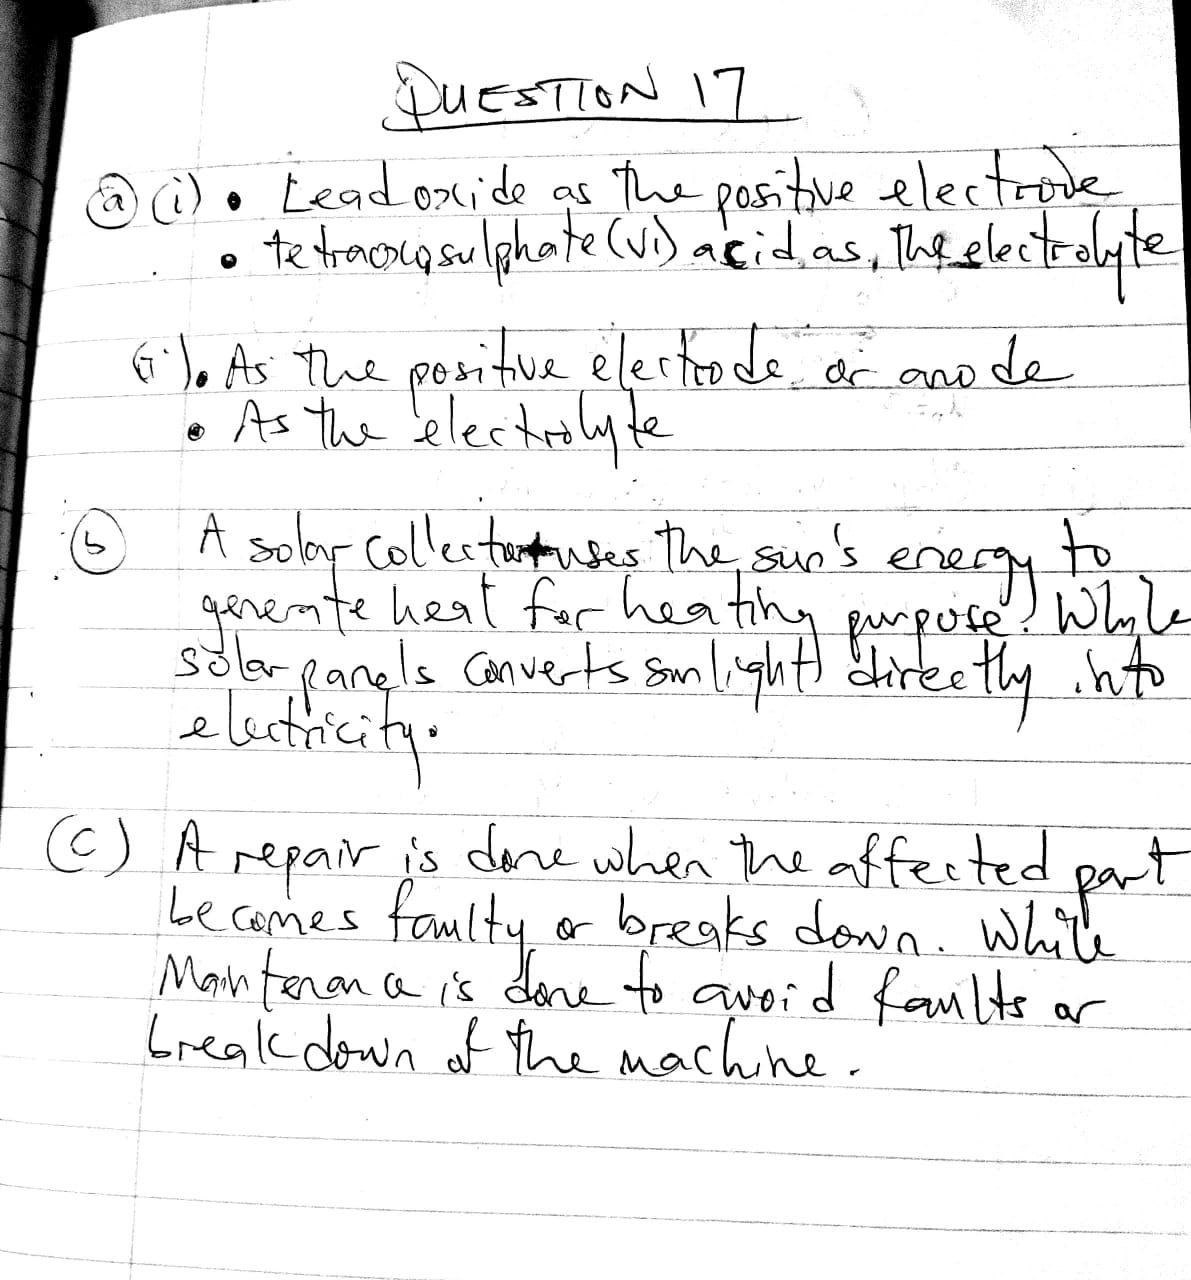 QUESTION 17
(a) (i) • Lead oxide as the positive electrode
• tetraoxosulphate (VI) acid as, the electrolyte
(ii). • As the positive electrode or anode
• As the electrolyte
(b) A solar collector uses the sun's energy to
generate heat for heating purpose. While
solar panels converts sunlight directly into
electricity.
(c) A repair is done when the affected part
becomes faulty or breaks down. While
Maintenance is done to avoid faults or
breakdown of the machine.